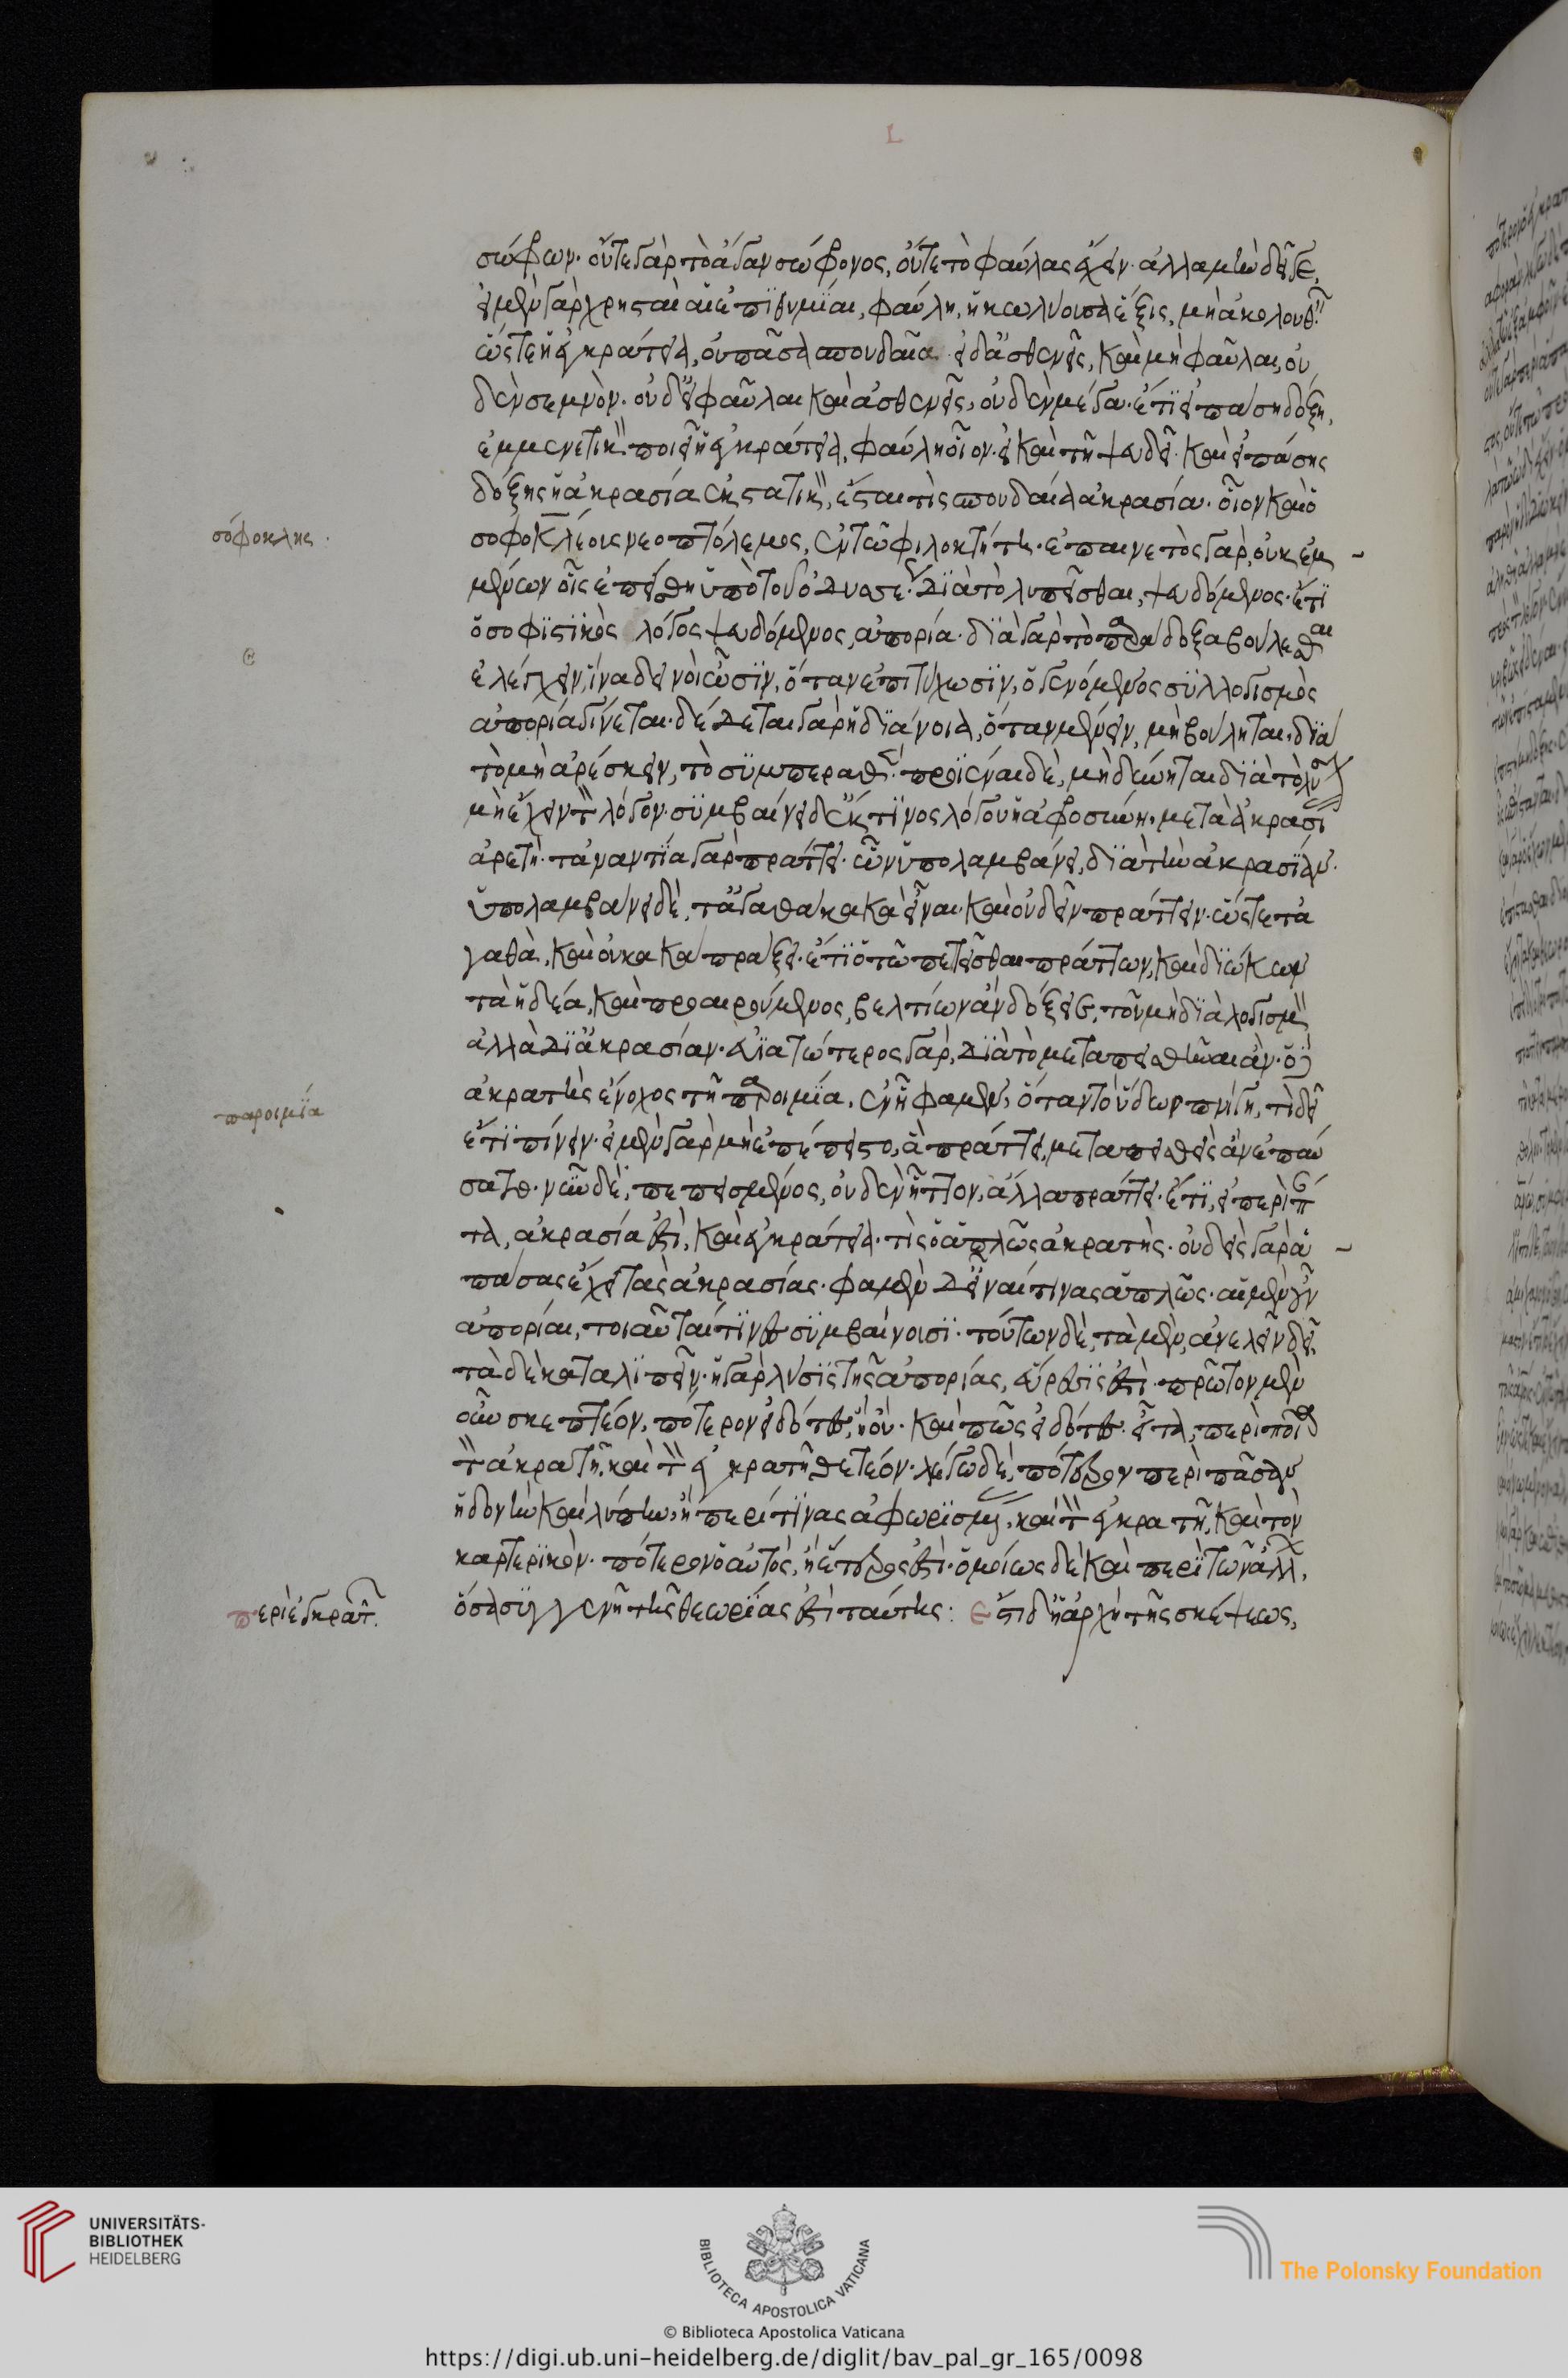 σώφρων· οὔτε γὰρ τὸ ἄγαν σώφρονος, οὔτε τὸ φαύλας ἔχειν· ἀλλὰ μὴν δεῖ γε,
εἰ μὲν γὰρ χρησταὶ αἱ ἐπιθυμίαι, φαύλη, ἡ κωλύουσα ἕξις, μὴ ἀκολουθεῖν
ὥστε ἡ ἐγκράτεια, οὐ πᾶσα σπουδαία· εἰ δ' ἀσθενεῖς, καὶ μὴ φαῦλαι, οὐ
δὲν σεμνὸν· οὐδ' εἰ φαῦλαι καὶ ἀσθενεῖς, οὐδὲν μέγα· ἔτι εἰ πάση δόξη,
ἐμμενετικὸν ποιεῖ ἡ ἐγκράτεια, φαύλη οἷον· εἰ καὶ τῆ ψευδεῖ· καὶ εἰ πάσης
δόξης ἡ ἀκρασία ἐκστατικὸν, ἔσται τὶς σπουδαία ἀκρασία· οἷον καὶ ὁ
σόφοκλης·
σοφοκλέους νεοπτόλεμος, ἐν τῶ φιλοκτήτη· ἐπαινετὸς γὰρ, οὐκ ἐμ
μένων οἷς ἐπείσθη ὑπὸ τοῦ ὀδυσσέως· διὰ τὸ λυπεῖσθαι, ψευδόμενος· ἔτι
ὁ σοφιστικὸς λόγος ψευδόμενος, ἀπορία· διὰ γὰρ τὸ παράδοξα βούλεσθαι
ἐλέγχειν, ἵνα δεινοὶ ὦσιν, ὅταν ἐπιτύχωσιν, ὁ γενόμενος συλλογισμὸς
ἀπορία γίνεται· δέδεται γὰρ ἡ διάνοια, ὅταν μένειν, μὴ βούληται· διὰ
τὸ μὴ ἀρέσκειν, τὸ συμπερανθὲν· προϊέναι δὲ, μὴ δύνηται διὰ τὸ λῦσαι
μὴ ἔχειν τὸν λόγον· συμβαίνει δ' ἔκ τινος λόγου ἡ ἀφροσύνη· μετὰ ἀκρασί
ἀρετὴ· τἀναντία γὰρ πράττει· ὧν ὑπολαμβάνει, διὰ τὴν ἀκρασίαν·
ὑπολαμβάνει δὲ, τἀγαθὰ κακὰ εἶναι· καὶ οὐ δεῖν πράττειν· ὥστε τὰ
γαθὰ, καὶ οὐ κακὰ πράξει· ἔτι ὁ τῶ πεπεῖσθαι πράττων, καὶ διώκων
τὰ ἡδέα, καὶ προαιρούμενος, βελτίων ἂν δόξειε, τοῦ μὴ διὰ λογισμὸν
ἀλλὰ δι' ἀκρασίαν· εὐιατώτερος γὰρ, διὰ τὸ μεταπεισθῆναι ἂν· ὁ δ'
παροιμία
ἀκρατὴς ἔνοχος τῆ παροιμία, ἐν ἧ φαμὲν, ὅταν τὸ ὕδωρ πνίγη, τί δεῖ
ἔτι πίνειν· εἰ μὲν γὰρ μὴ ἐπέπειστο, ἃ πράττει, μεταπεισθεὶς ἂν ἐπαύ
σατο· νῦν δὲ, πεπεισμένος, οὐδὲν ἧττον, ἄλλα πράττει· ἔτι, εἰ περὶ πάν
τα, ἀκρασία ἐστὶ, καὶ ἐγκράτεια· τίς ὁ ἁπλῶς ἀκρατής· οὐδεὶς γὰρ ἁ
πάσας ἔχει τὰς ἀκρασίας· φαμὲν δ' εἶναί τινας ἁπλῶς· αἱ μὲν οὖν
ἀπορίαι, τοιαῦταί τινες συμβαίνουσι· τούτων δὲ, τὰ μὲν, ἀνελεῖν δεῖ,
τὰ δὲ καταλιπεῖν· ἡ γὰρ λύσις τῆς ἀπορίας, εὕρεσίς ἐστι· πρῶτον μὲν
οὖν σκεπτέον, πότερον εἰδότες, ἢ οὔ· καὶ πῶς εἰδότες· εἶτα, περὶ ποῖα
τὸν ἀκρατῆ, καὶ τὸν ἐγκρατῆ θετέον· λέγω δὲ, πότερον περὶ πᾶσαν
ἡδονὴν καὶ λύπην, ἢ περί τινας ἀφωρισμένας, καὶ τὸν ἐγκρατῆ, καὶ τὸν
καρτερικὸν· πότερον ὁ αὐτὸς, ἢ ἕτερός ἐστι· ὁμοίως δὲ καὶ περὶ τῶν ἄλλων,
περὶ ἐγκρατ.
ὅσα συγγενῆ τῆς θεωρίας ἐστὶ ταύτης: ἔστι δ' ἡ ἀρχὴ τῆς σκέψεως,
UNIVERSITÄTS-
BIBLIOTHEK
HEIDELBERG
BIBLIOTECA APOSTOLICA VATICANA
The Polonsky Foundation
© Biblioteca Apostolica Vaticana
https://digi.ub.uni-heidelberg.de/diglit/bav_pal_gr_165/0098